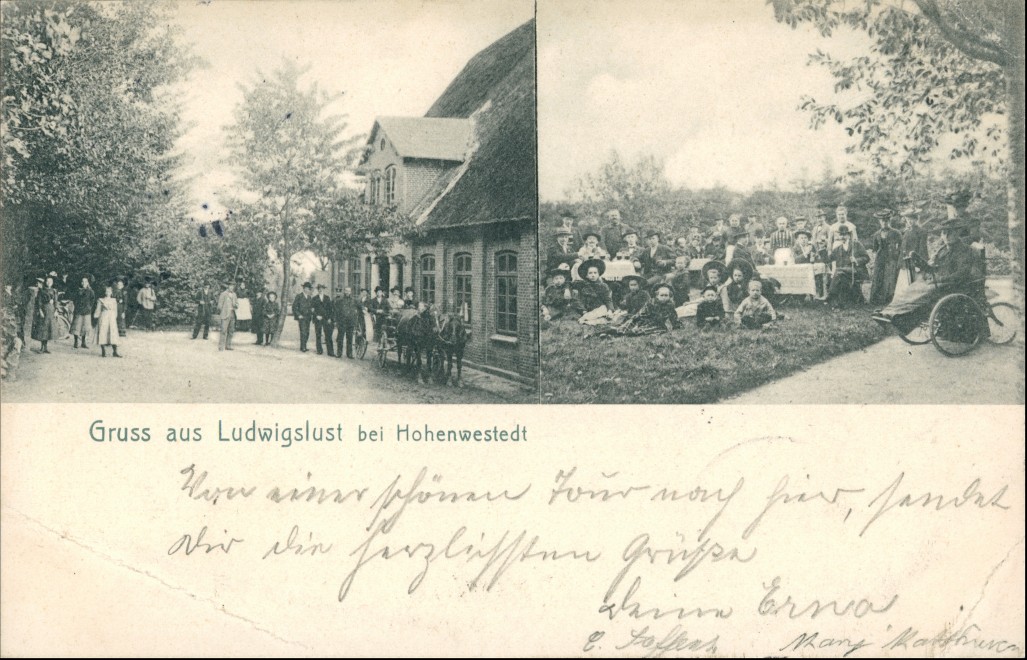 Gruss aus Ludwigslust bei Hohenwestedt
Von einer schönen Tour nach hier, sendet
Dir die herzlichsten Grüße
deine Erna